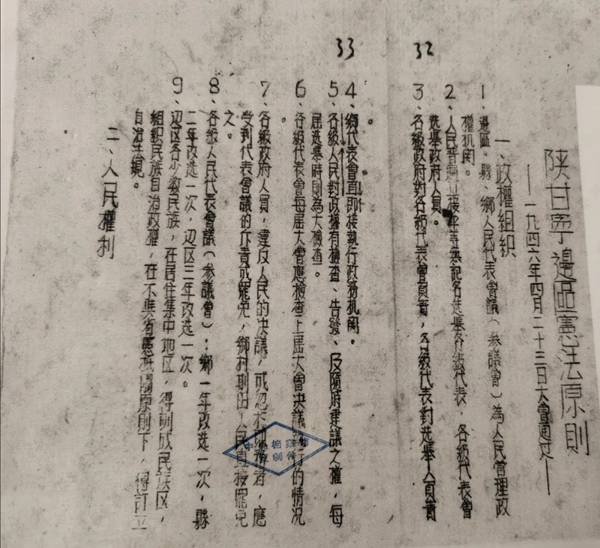 陕甘寧邊區憲法原則
——一九四六年四月二十三日大會通过——
一、政權組织
1、邊區、縣、鄉人民代表會議(參議會)為人民管理政
權机関。
2、人民普遍直接平等無記名选举各級代表 各級代表會
选举政府人員。
3、各級政府对各級代表會負責,各級代表对选举人負責
32
33
。
4、鄉代表會直即接執行政務机関。
5、各級人民对政權有檢查、告發、及隨时建議之權,每
屆选举时則為大檢查。
6、各級代表會每屆大會應检查上屆大會决議执行的情况
。
7、各級政府人員,違反人民的决議,或忽于職務者,應
受到代表會議的斥責或罷免,鄉村則由人民直接罷免
之。
8、各級人民代表會議(参議會):鄉一年改选一次,縣
二年改选一次,边区三年改选一次。
9、边区各少数民族,在居住集中地区,得划成民族区,
組织民族自治政權,在不與省憲抵觸原則下,得訂立
自治法規。
二、人民權利